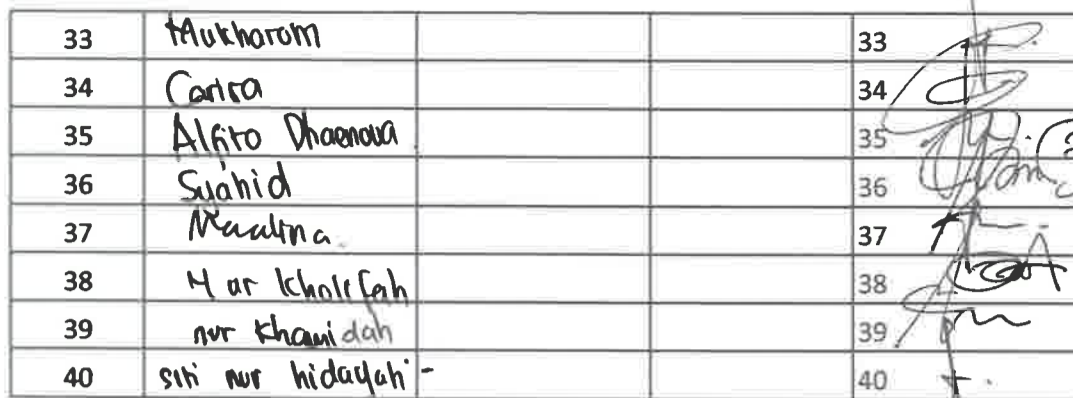 33 Mukharom 33
34 Carira 34
35 Alfito Dhaenova 35
36 Syahid 36
37 Maulina. 37
38 Nur Kholifah 38
39 nur khamidah 39
40 siti nur hidayah - 40